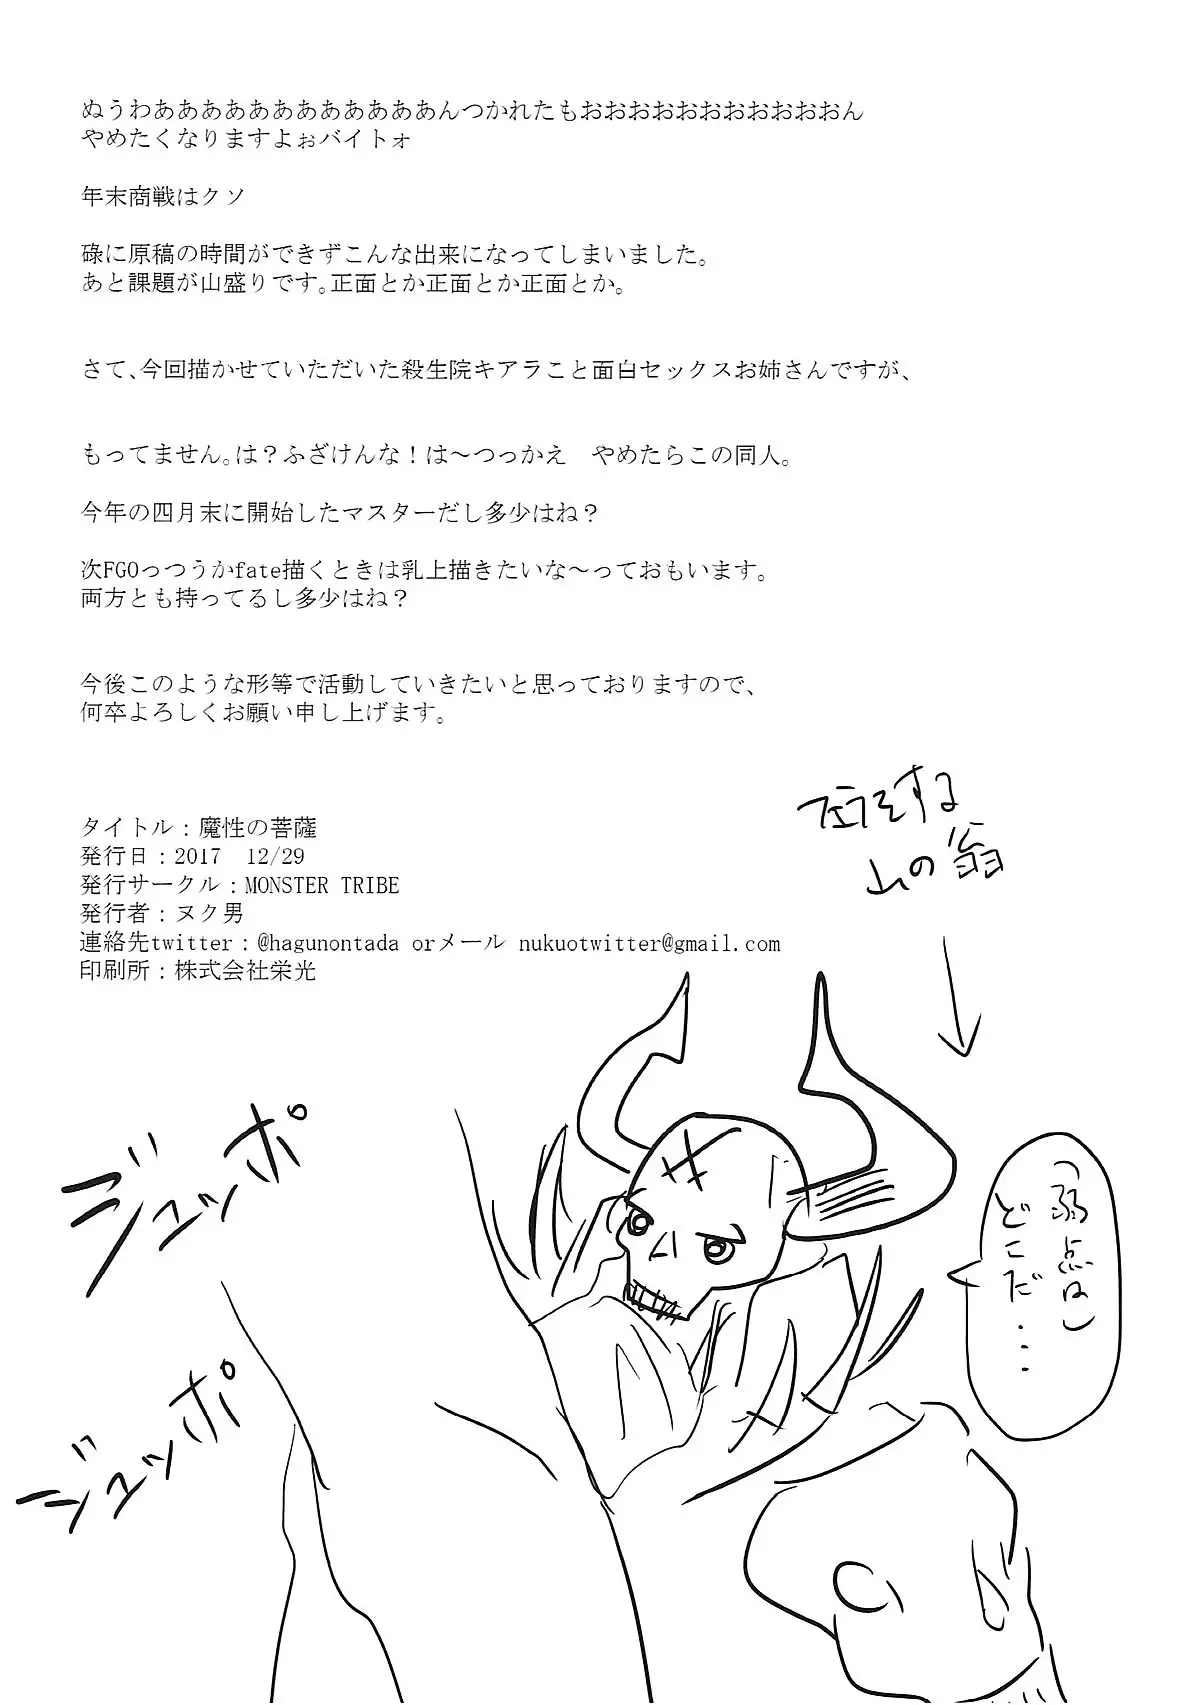 ぬうわあああああああああああああんつかれたもおおおおおおおおおおおおん
やめたくなりますよぉバイトォ
年末商戦はクソ
碌に原稿の時間ができずこんな出来になってしまいました。
あと課題が山盛りです。正面とか正面とか正面とか。
さて、今回描かせていただいた殺生院キアラこと面白セックスお姉さんですが、
もってません。は？ふざけんな！は～つっかえ　やめたらこの同人。
今年の四月末に開始したマスターだし多少はね？
次FGOっつうかfate描くときは乳上描きたいな～っておもいます。
両方とも持ってるし多少はね？
今後このような形等で活動していきたいと思っておりますので、
何卒よろしくお願い申し上げます。
タイトル：魔性の菩薩
発行日：2017　12/29
発行サークル：MONSTER TRIBE
発行者：ヌク男
連絡先twitter：@hagunontada orメール nukuotwitter@gmail.com
印刷所：株式会社栄光
フェラをする
山の翁
「弱点は」
どこだ・・・
ジュッポ
ジュッポ